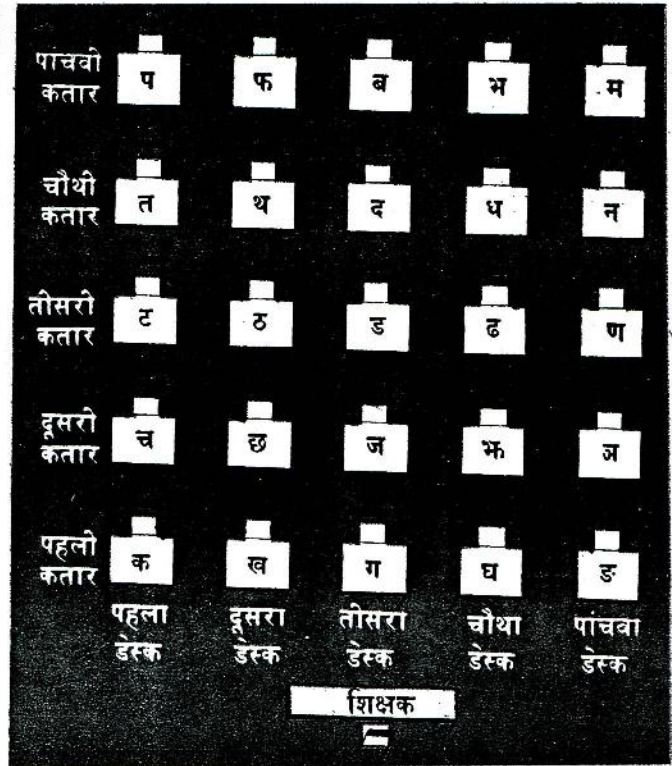 पांचवी
कतार
प फ ब भ म
चौथी
कतार
त थ द ध न
तीसरी
कतार
ट ठ ड ढ ण
दूसरी
कतार
च छ ज झ ञ
पहली
कतार
क ख ग घ ङ
पहला दूसरा तीसरा चौथा पांचवा
डेस्क डेस्क डेस्क डेस्क डेस्क
शिक्षक